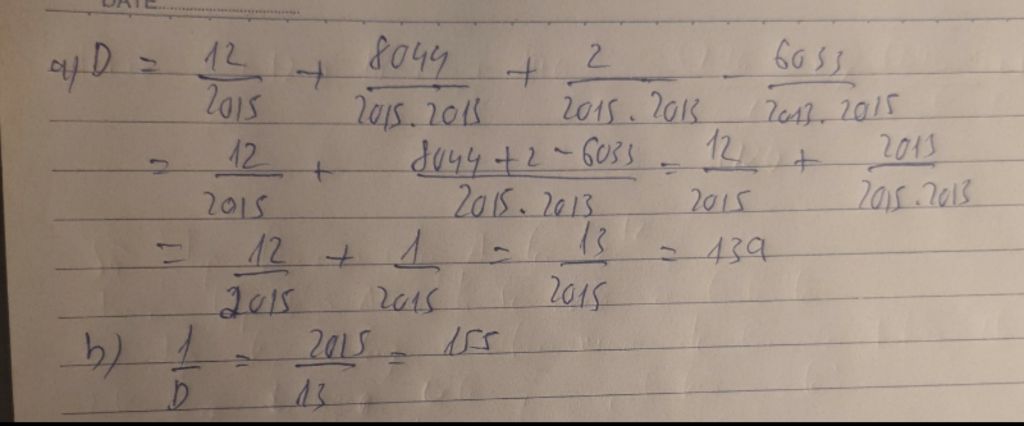 DATE
a) D = 12/2015 + 8044/2015.2013 + 2/2015.2013 - 6033/2013.2015
= 12/2015 + 8044+2-6033/2015.2013 = 12/2015 + 2013/2015.2013
= 12/2015 + 1/2015 = 13/2015 = 139
b) 1/D = 2015/13 = 155